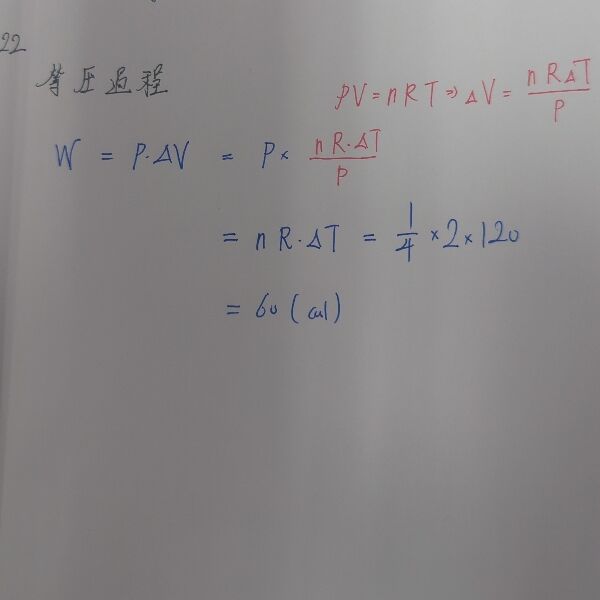 22
等压过程
PV = nRT ⇒ ΔV = nRΔT / P
W = P·ΔV = P × nR·ΔT / P
= nR·ΔT = 1/4 × 2 × 120
= 60 (cal)